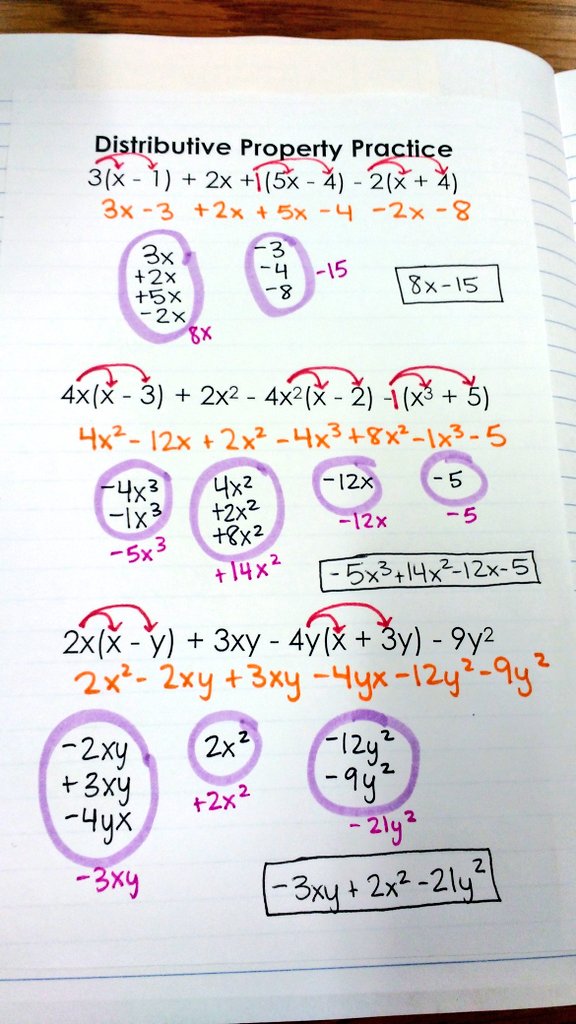 Distributive Property Practice
3(x - 1) + 2x +1(5x - 4) - 2(x + 4)
3x - 3 + 2x + 5x - 4 - 2x - 8
3x
+2x
+5x
-2x
8x
-3
-4
-8
-15
8x - 15
4x(x - 3) + 2x² - 4x²(x - 2) -1(x³ + 5)
4x² - 12x + 2x² - 4x³ + 8x² - 1x³ - 5
-4x³
-1x³
-5x³
4x²
+2x²
+8x²
+14x²
-12x
-12x
-5
-5
-5x³+14x²-12x-5
2x(x - y) + 3xy - 4y(x + 3y) - 9y²
2x² - 2xy + 3xy - 4yx - 12y² - 9y²
-2xy
+3xy
-4yx
-3xy
2x²
+2x²
-12y²
-9y²
-21y²
-3xy + 2x² - 21y²